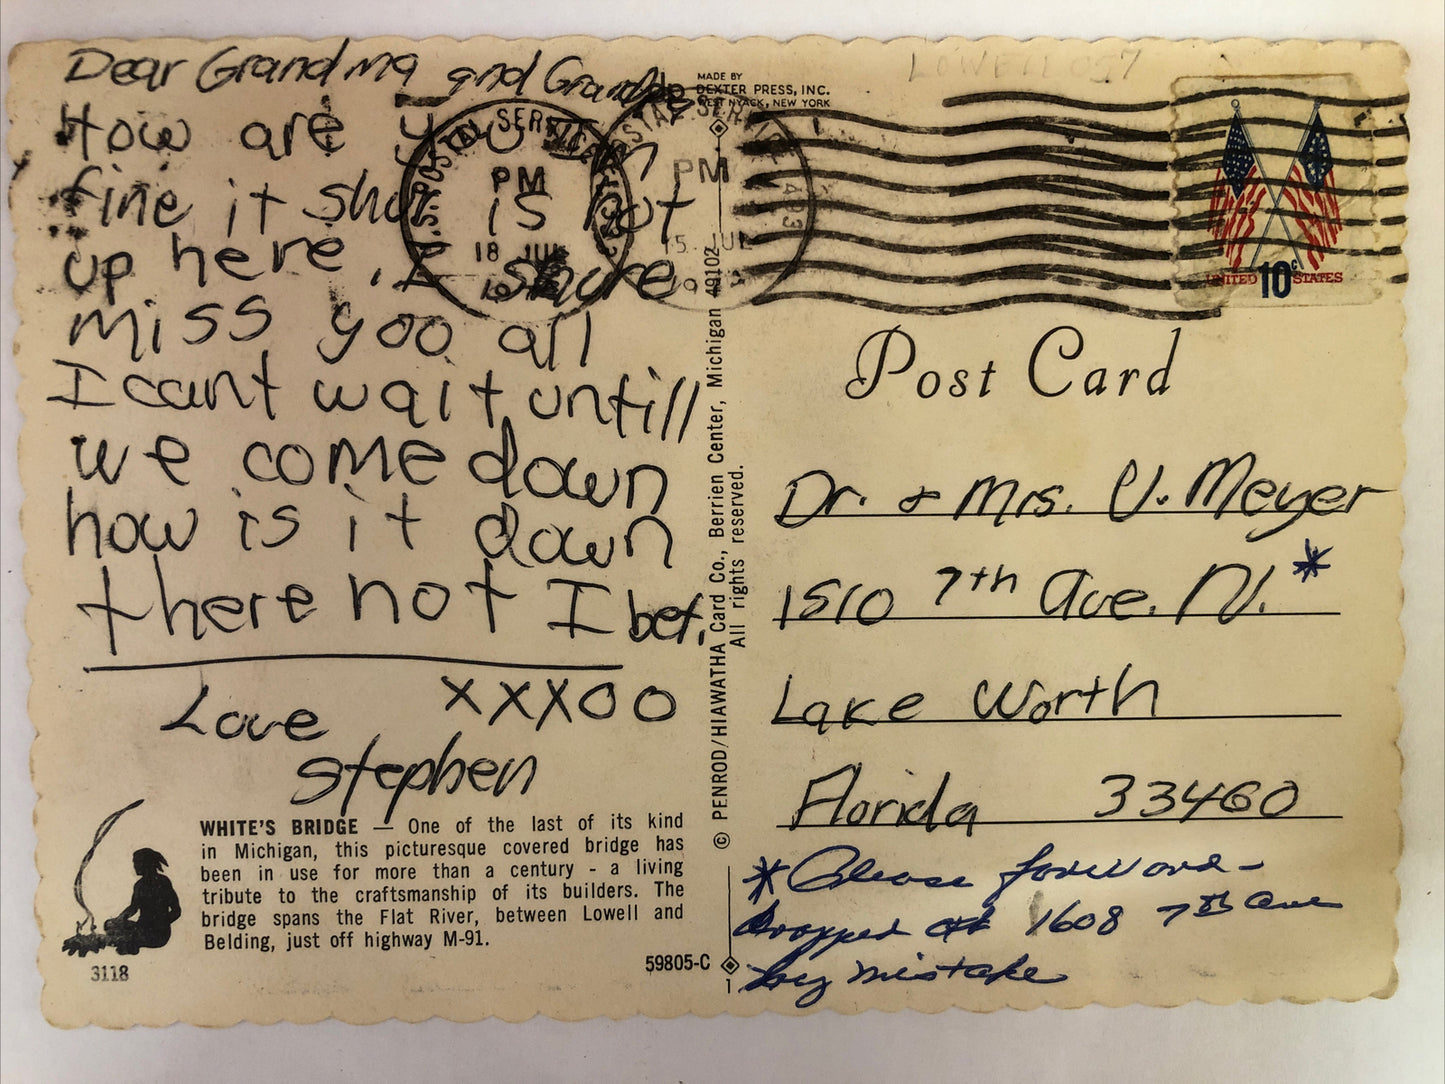 Dear Grandma and Grandpa
How are you I'm
fine it shur is hot
up here. I shure
miss you all
I cant wait untill
we come down
how is it down
there hot I bet.
Love XXXOO
Stephen
WHITE'S BRIDGE — One of the last of its kind
in Michigan, this picturesque covered bridge has
been in use for more than a century - a living
tribute to the craftsmanship of its builders. The
bridge spans the Flat River, between Lowell and
Belding, just off highway M-91.
3118
59805-C
1
MADE BY
DEXTER PRESS, INC.
WEST NYACK, NEW YORK
© PENROD/HIAWATHA Card Co., Berrien Center, Michigan 49102
All rights reserved.
U.S. POSTAL SERVICE
PM
18 JUL
19
POSTAL SERVICE
PM
15 JUL
LOWELL 057
UNITED 10c STATES
Post Card
Dr. & Mrs. V. Meyer
1510 7th Ave. N. *
Lake Worth
Florida 33460
* Please forward -
dropped at 1608 7th Ave
by mistake